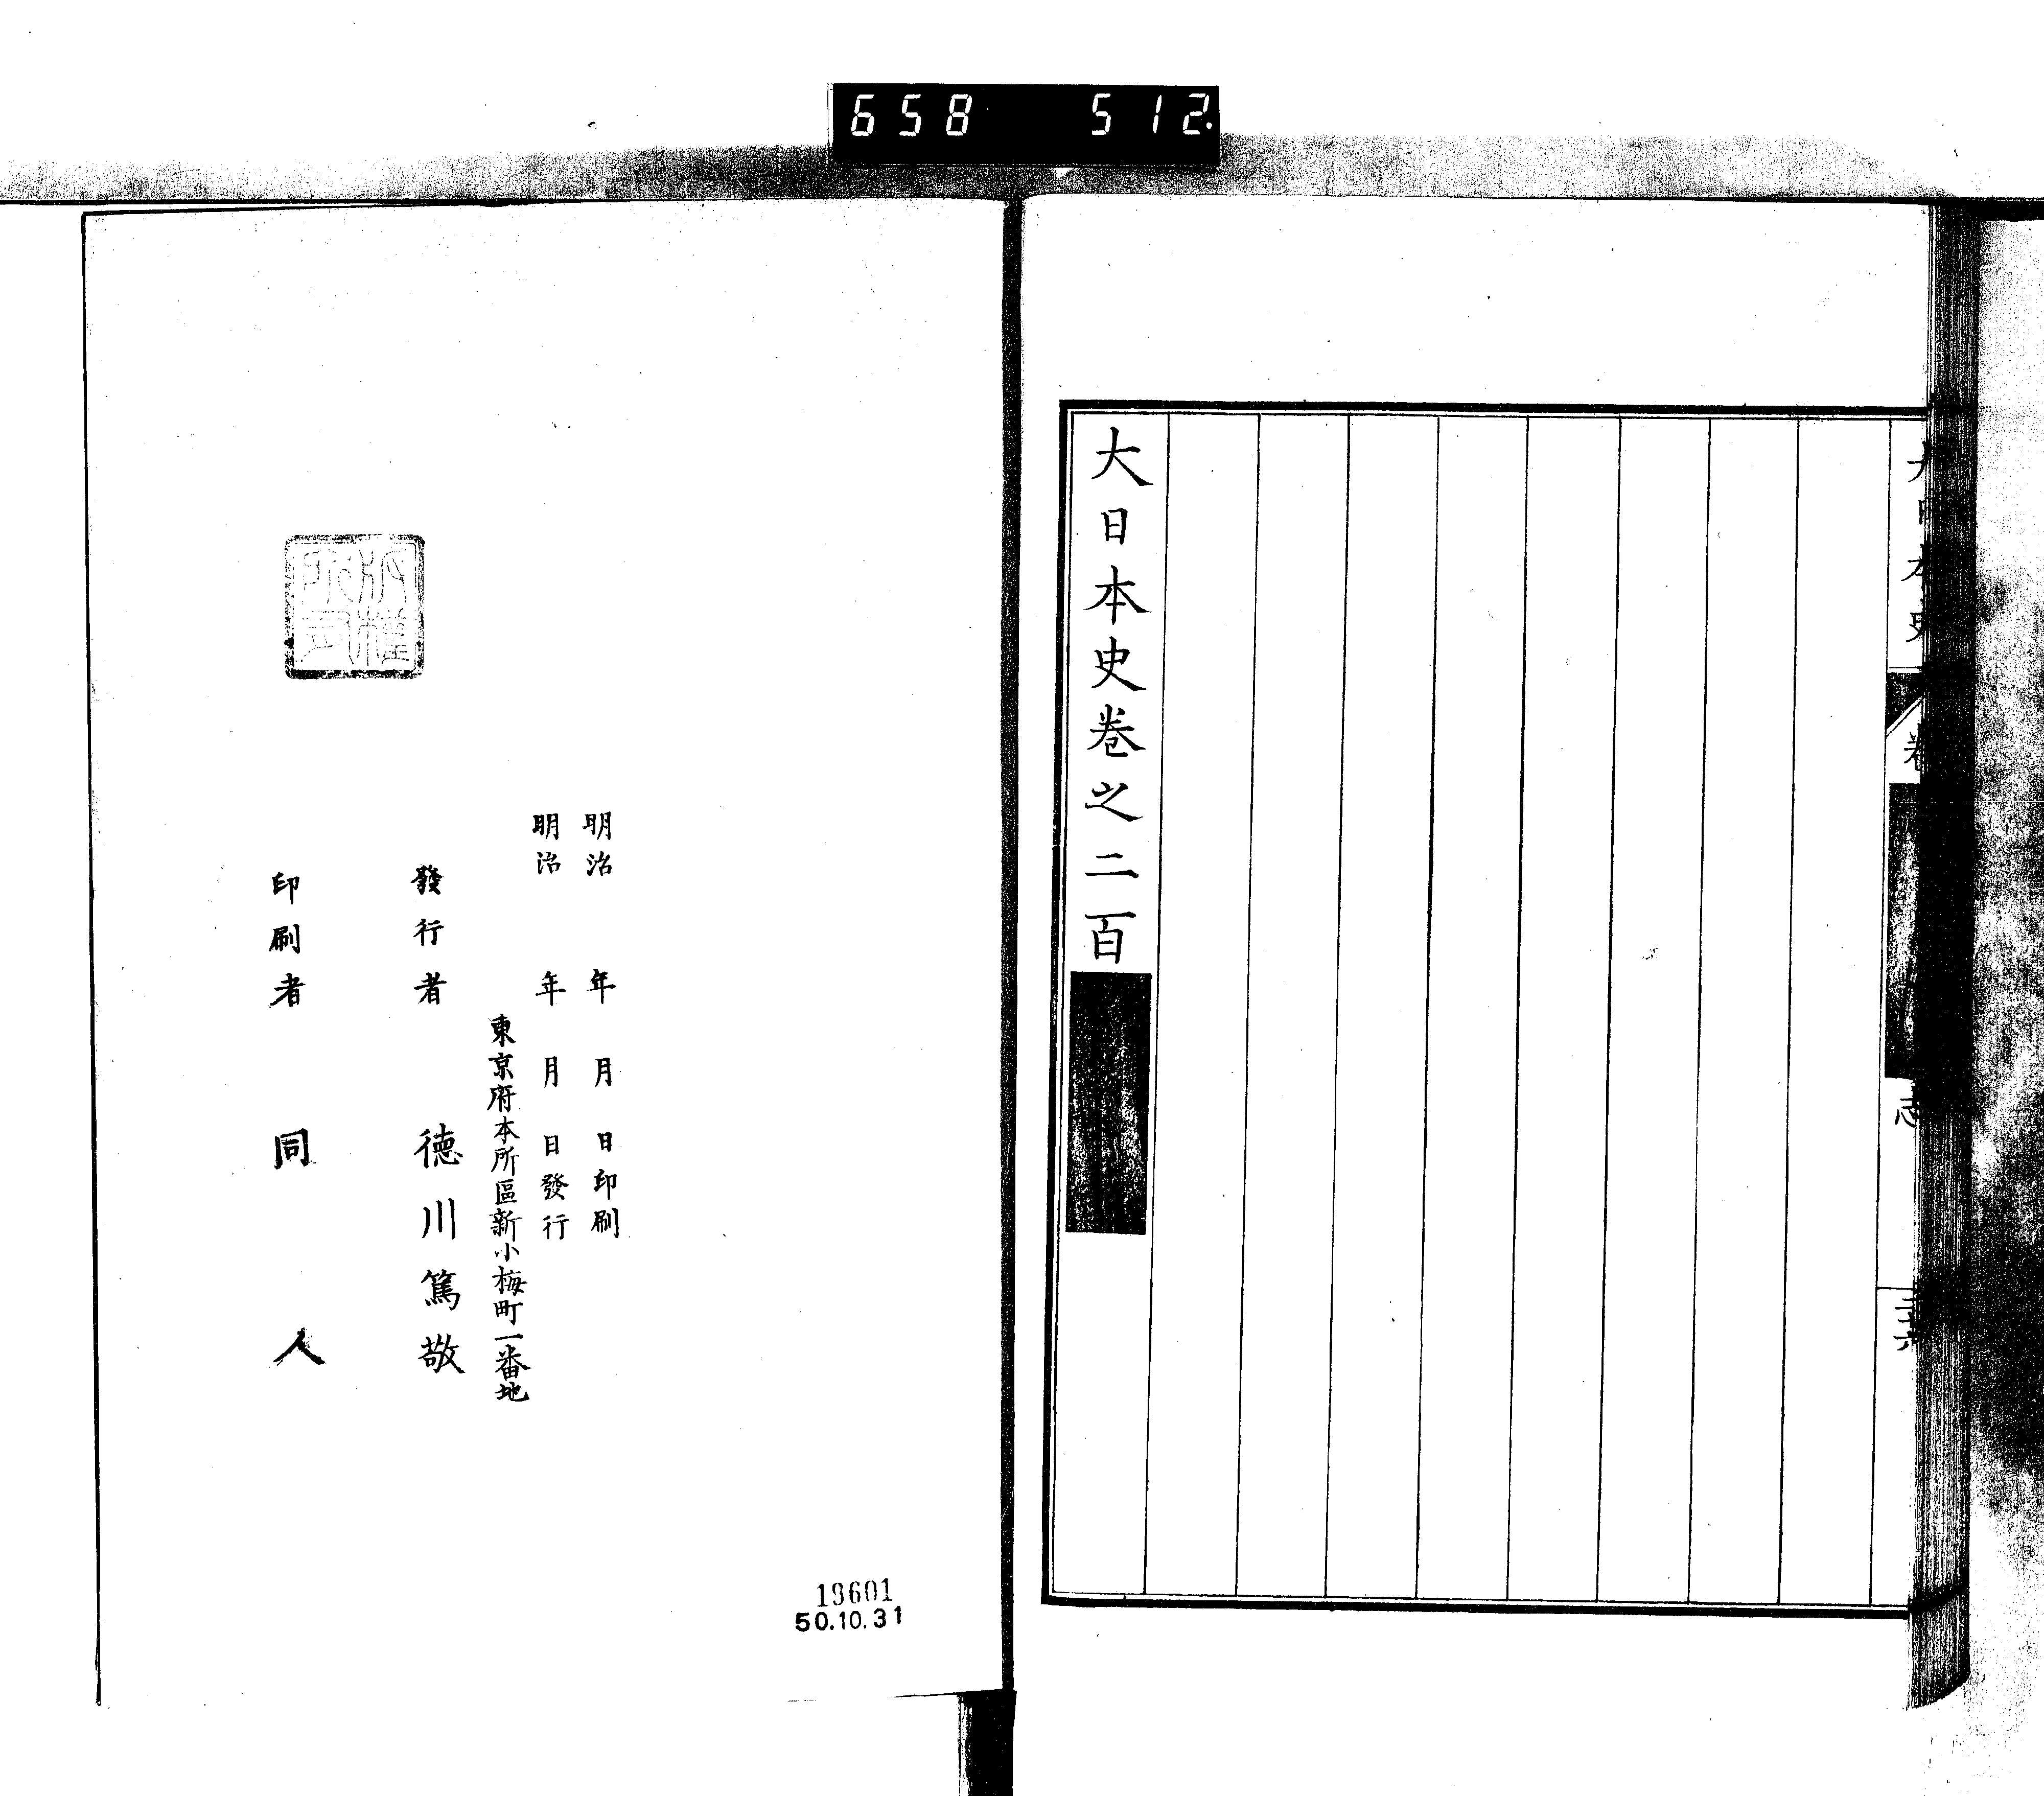 658 512.
大日本史
卷
志
大日本史卷之二百
明治 年 月 日印刷
明治 年 月 日發行
東京府本所區新小梅町一番地
發行者 德川篤敬
印刷者 同人
版權所有
19601
50.10.31